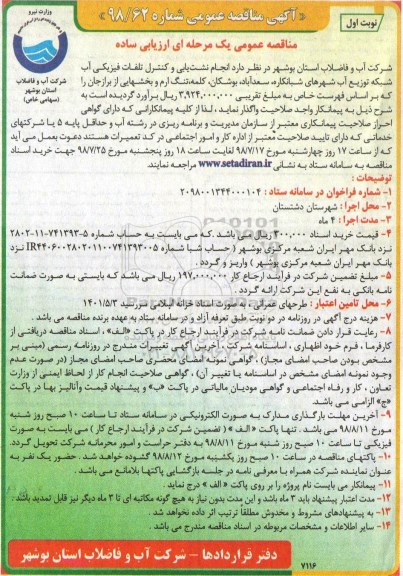 نوبت اول
« آگهی مناقصه عمومی شماره ۹۸/۶۲ »
وزارت نیرو
شرکت آب و فاضلاب
استان بوشهر
(سهامی خاص)
مناقصه عمومی یک مرحله ای ارزیابی ساده
شرکت آب و فاضلاب استان بوشهر در نظر دارد انجام نشت‌یابی و کنترل تلفات فیزیکی آب
شبکه توزیع آب شهرهای شبانکاره، سعدآباد، بوشکان، کلمه، تنگ ارم و بخشهایی از برازجان را
که بر اساس فهرست خاص به مبلغ تقریبی ۳,۹۲۴,۰۰۰,۰۰۰ ریال برآورد گردیده است به
شرح ذیل به پیمانکار واجد صلاحیت واگذار نماید. لذا از کلیه پیمانکارانی که دارای گواهی
احراز صلاحیت پیمانکاری معتبر از سازمان مدیریت و برنامه ریزی در رشته آب و حداقل پایه ۵ یا شرکتهای
خدماتی که دارای تایید صلاحیت معتبر از اداره کار و امور اجتماعی در کد تعمیرات هستند دعوت بعمل می آید
که از ساعت ۱۷ روز چهارشنبه مورخ ۹۸/۷/۱۷ لغایت ساعت ۱۸ روز پنجشنبه مورخ ۹۸/۷/۲۵ جهت خرید اسناد
مناقصه به سامانه ستاد به نشانی www.setadiran.ir مراجعه نمایند.
توضیحات :
۱- شماره فراخوان در سامانه ستاد : ۲۰۹۸۰۰۱۳۴۴۰۰۰۱۰۴
۲- محل اجرا : شهرستان دشتستان
۳- مدت اجرا : ۴ ماه
۴- قیمت خرید اسناد ۲۰۰,۰۰۰ ریال می باشد. که می بایست به حساب شماره ۵-۷۴۱۳۹۳-۱۱-۲۸۰۲
نزد بانک مهر ایران شعبه مرکزی بوشهر ( حساب شبا شماره IR۴۴۰۶۰۰۲۸۰۲۰۱۱۰۰۷۴۱۳۹۳۰۰۵ نزد
بانک مهر ایران شعبه مرکزی بوشهر ) واریز و گردد .
۵- مبلغ تضمین شرکت در فرآیند ارجاع کار ۱۹۷,۰۰۰,۰۰۰ ریال می باشد که بایستی به صورت ضمانت
نامه بانکی به نفع این شرکت ارائه گردد .
۶- محل تامین اعتبار : طرحهای عمرانی، به صورت اسناد خزانه اسلامی سررسید ۱۴۰۱/۵/۳
۷- هزینه درج آگهی در روزنامه در دو نوبت طبق تعرفه آزاد و در سامانه ستاد به عهده برنده مناقصه می باشد .
۸- رعایت قرار دادن ضمانت نامه شرکت در فرآیند ارجاع کار در پاکت «الف» ، اسناد مناقصه دریافتی از
کارفرما ، فرم خود اظهاری ، اساسنامه شرکت ، آخرین آگهی تغییرات مندرج در روزنامه رسمی (مبنی بر
مشخص بودن صاحب امضای مجاز) ، گواهی نمونه امضای محضری صاحب امضای مجاز (در صورت عدم
وجود نمونه امضای مشخص در اساسنامه یا تغییر آن) ، گواهی صلاحیت انجام کار از لحاظ ایمنی از وزارت
تعاون ، کار و رفاه اجتماعی و گواهی مودیان مالیاتی در پاکت «ب» و پیشنهاد قیمت وآنالیز بها در پاکت
«ج» الزامی می باشد.
۹- آخرین مهلت بارگذاری مدارک به صورت الکترونیکی در سامانه ستاد تا ساعت ۱۰ صبح روز شنبه
مورخ ۹۸/۸/۱۱ می باشد . تنها پاکت « الف » ( تضمین شرکت در فرآیند ارجاع کار ) می بایست به صورت
فیزیکی تا ساعت ۱۰ صبح روز شنبه مورخ ۹۸/۸/۱۱ به دفتر حراست و امور محرمانه شرکت تحویل گردد.
۱۰- پاکتهای مناقصه در ساعت ۱۰ صبح روز یکشنبه مورخ ۹۸/۸/۱۲ گشوده خواهد شد. حضور یک نفر به
عنوان نماینده شرکت همراه با معرفی نامه در جلسه بازگشایی پاکتها بلامانع می باشد .
۱۱- پیمانکار می بایست نام پروژه را بر روی پاکت « الف » درج نماید .
۱۲- مدت اعتبار پیشنهاد باید ۳ ماه باشد و این مدت بدون نیاز به هیچ گونه مکاتبه ای تا ۳ ماه دیگر نیز قابل تمدید باشد .
۱۳- به پیشنهادهای مشروط و مخدوش مطلقا ترتیب اثر داده نخواهد شد .
۱۴- سایر اطلاعات و مشخصات مربوطه در اسناد مناقصه مندرج می باشد .
دفتر قراردادها – شرکت آب و فاضلاب استان بوشهر
۷۱۱۶